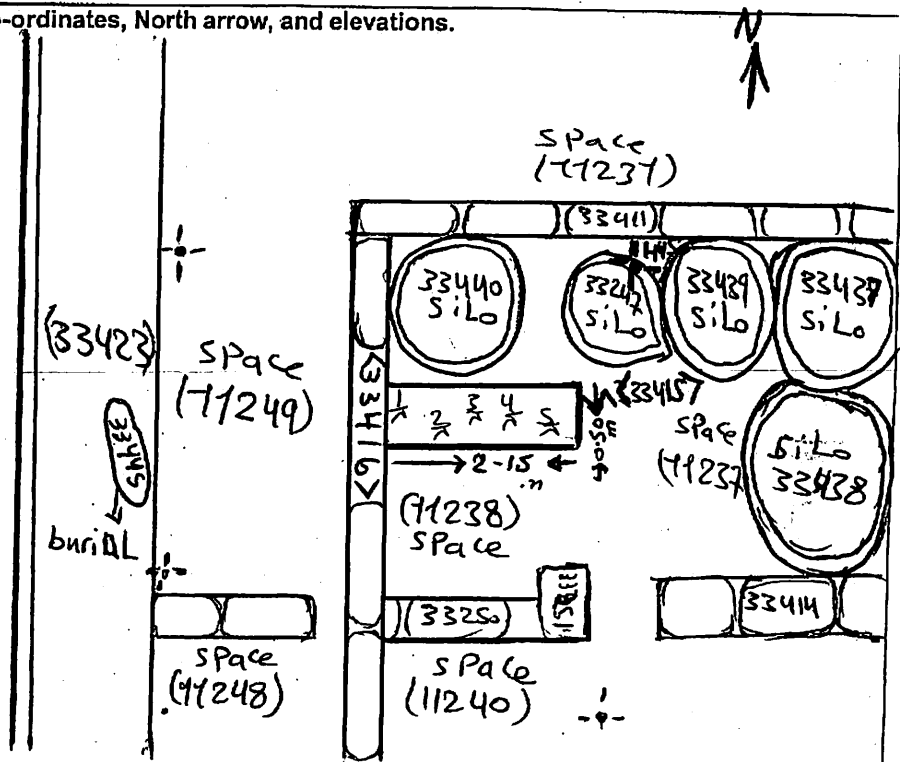 -ordinates, North arrow, and elevations.
N
Space
(11237)
(33411)
33440
SiLo
33247
SiLo
33439
SiLo
33437
SiLo
(33423)
Space
(11249)
<33416>
1 2 3 4 5
0.50m
2-15
m
Space
(11237
SiLo
33438
33445
buriAL
(11238)
Space
(33250)
33414
Space
(11248)
Space
(11240)